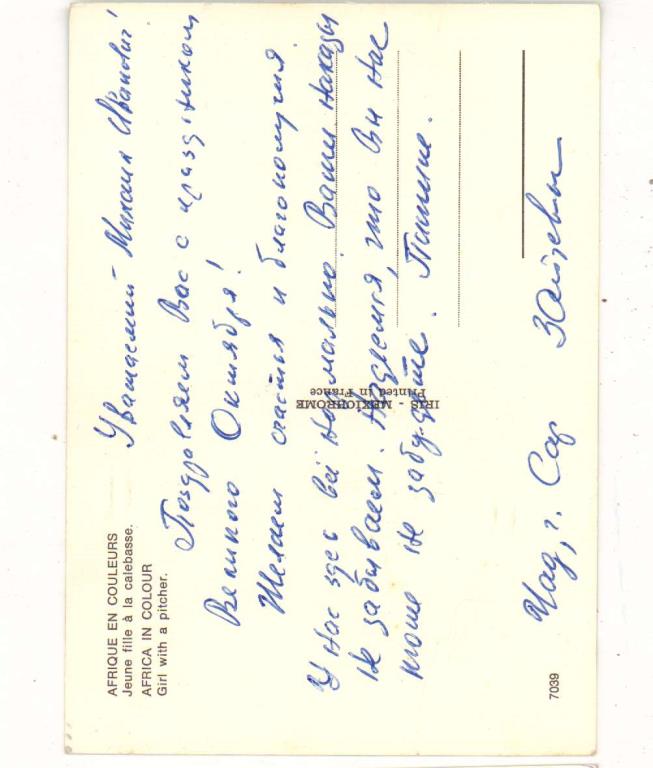 AFRIQUE EN COULEURS
Jeune fille à la calebasse.
AFRICA IN COLOUR
Girl with a pitcher.
Уважаемый Михаил Иванович!
Поздравляем Вас с праздником
Великого Октября!
Желаем счастья и благополучия.
У нас здес всё нормально. Ваши наказы
не забываем. Надеемся, что Вы нас
тоже не забудете. Пишите.
Чад, г. Сар Зайцевы
IRIS - MEXICHROME
Printed in France
7039